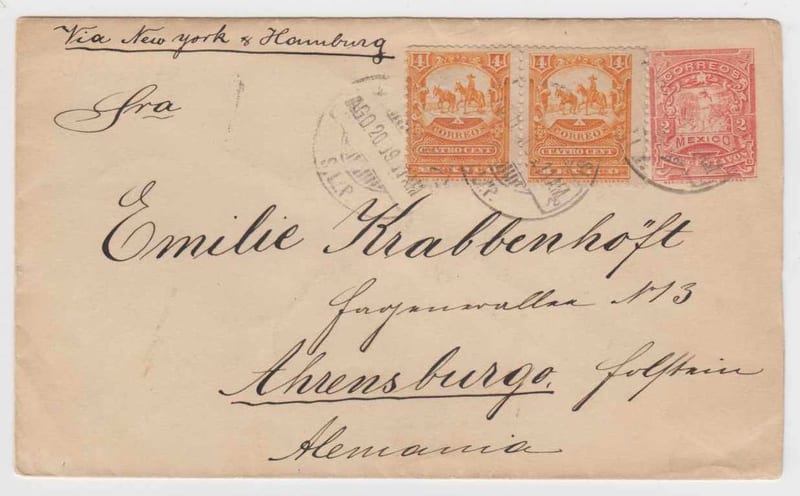 Via New York & Hamburg
4 4
CORREO CORREO
CUATRO CENT CUATRO CENT
CORREOS
2 2
MEXICO
Sra
AGO 20
S.L.P.
Emilie Krabbenhöft
Hagenerallee N 13
Ahrensburgo. Holstein
Alemania